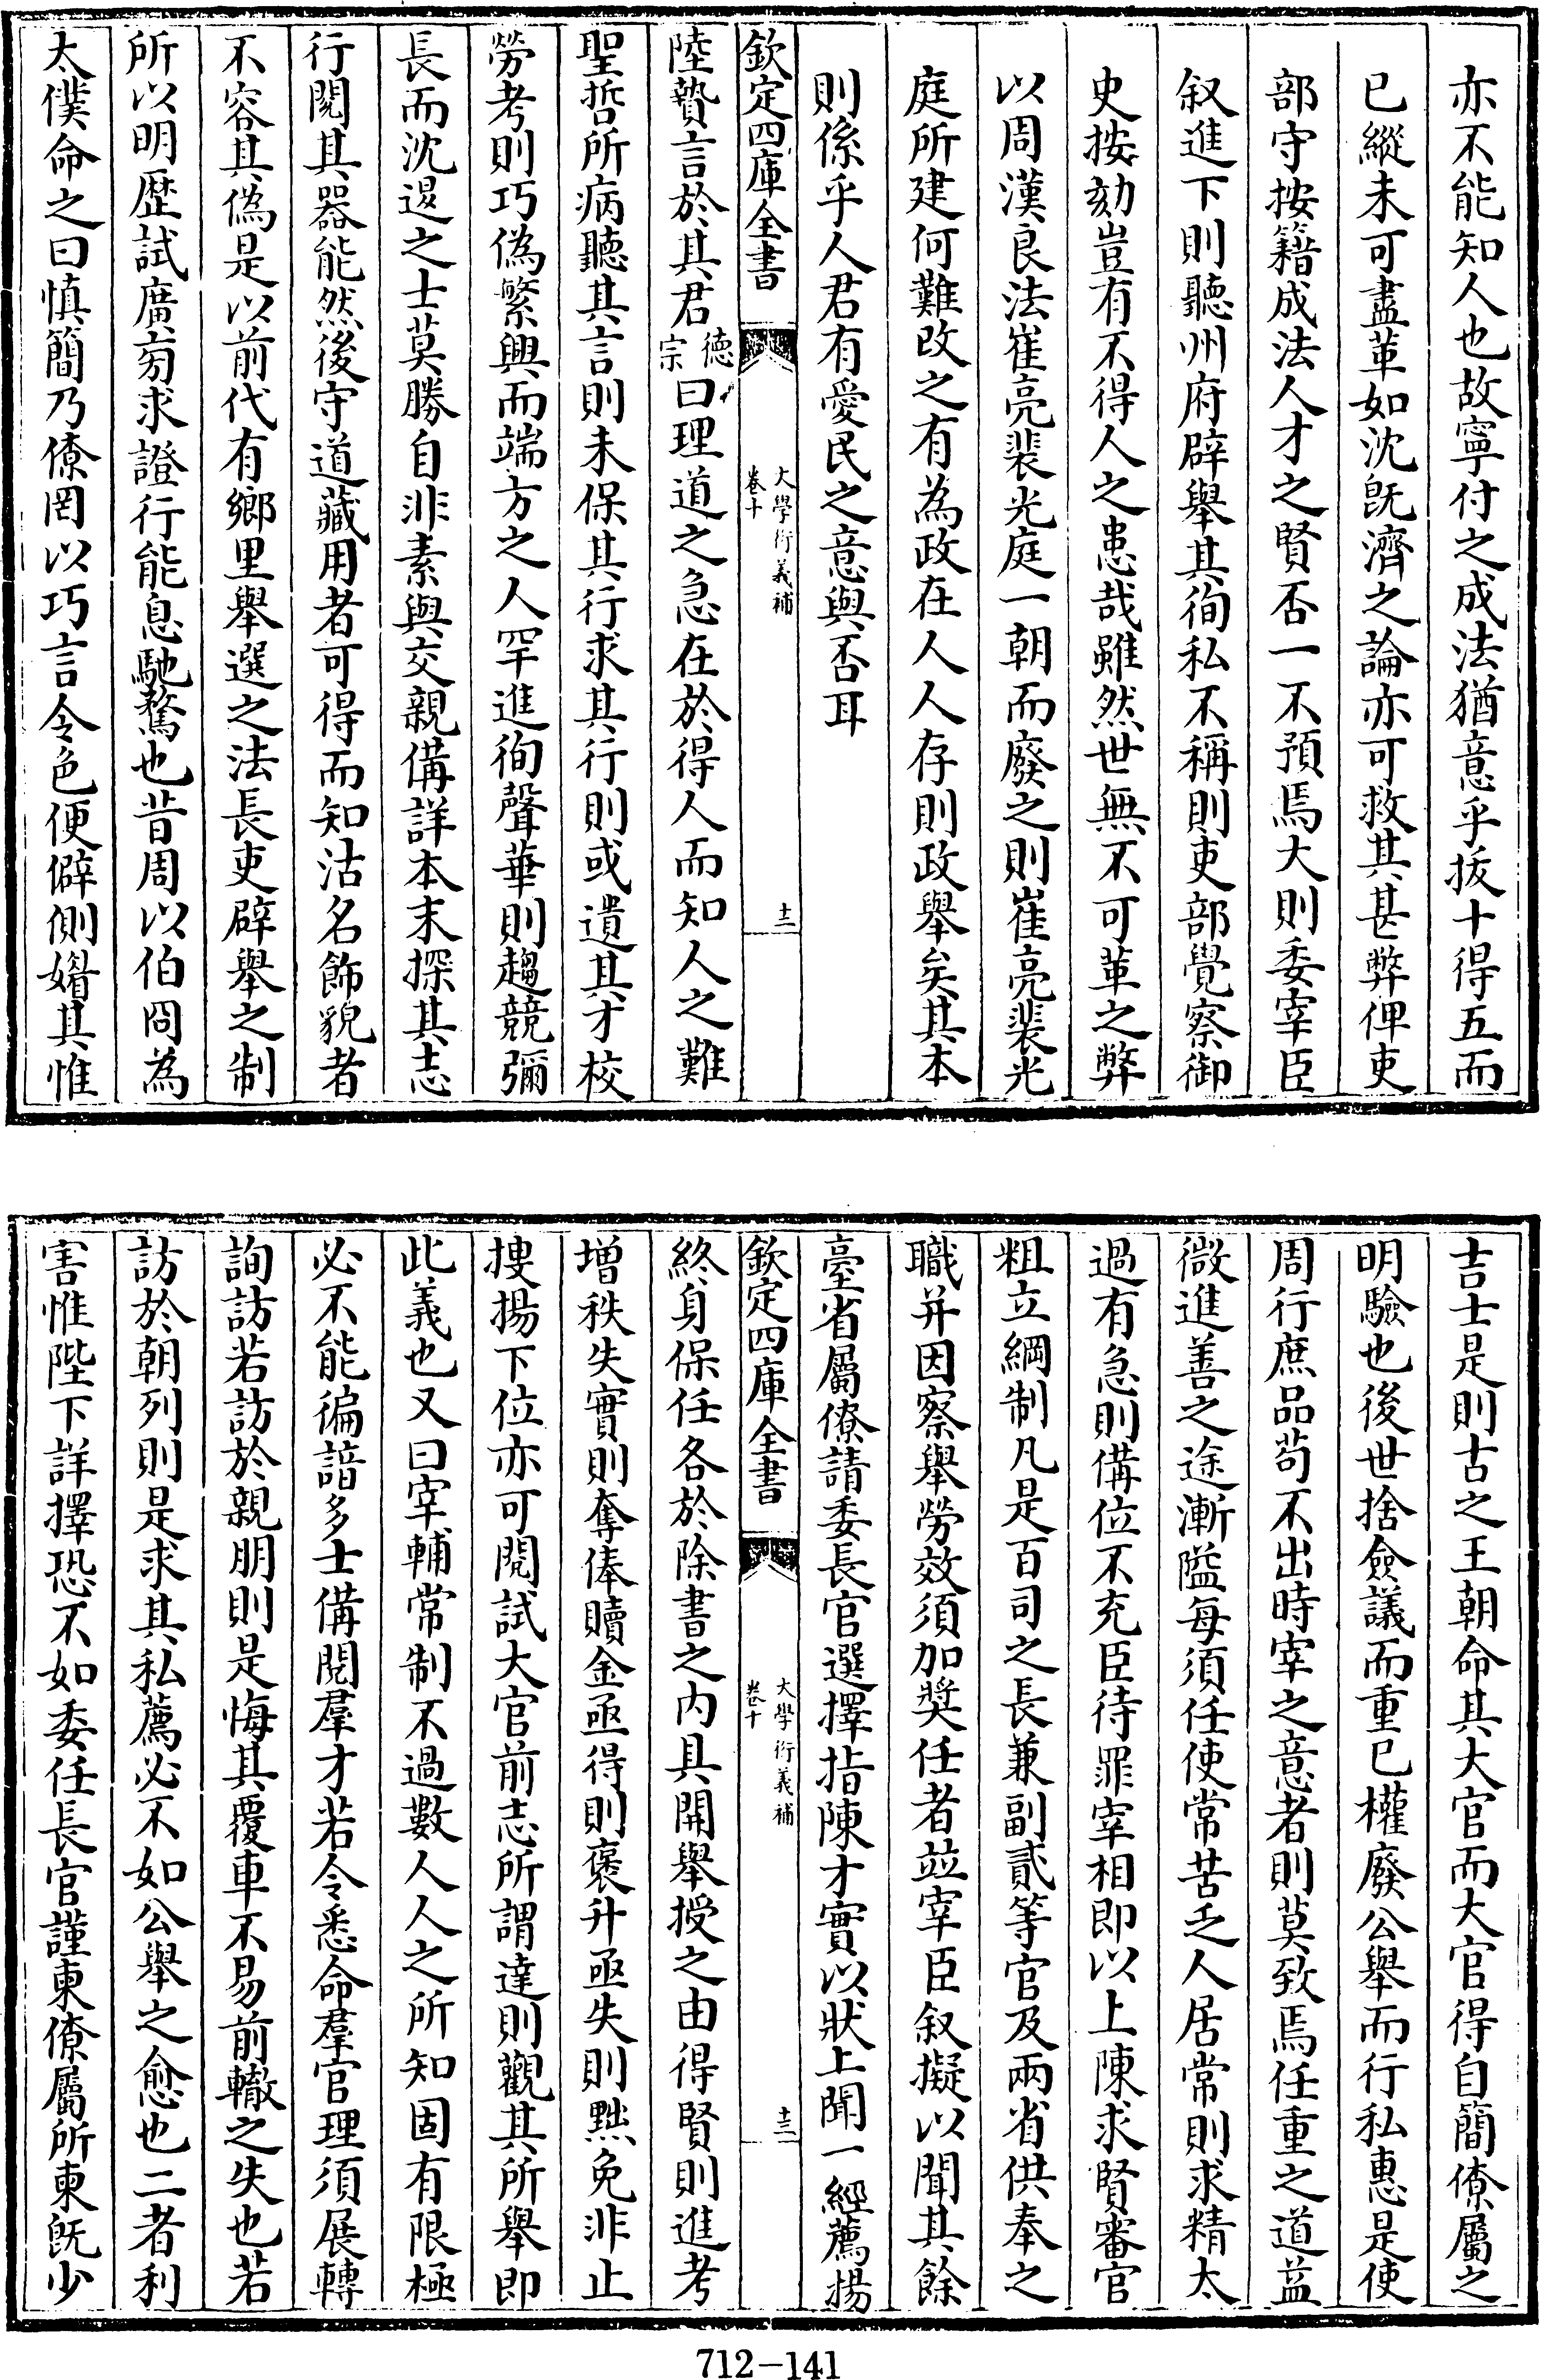 亦不能知人也故寧付之成法猶意乎拔十得五而
已縱未可盡革如沈旣濟之論亦可救其甚弊俾吏
部守按籍成法人才之賢否一不預焉大則委宰臣
叙進下則聽州府辟舉其徇私不稱則吏部覺察御
史按劾豈有不得人之患哉雖然世無不可革之弊
以周漢良法崔亮裴光庭一朝而廢之則崔亮裴光
庭所建何難改之有為政在人人存則政舉矣其本
則係乎人君有愛民之意與否耳
欽定四庫全書
大學衍義補
卷十
十二
陸贄言於其君德宗曰理道之急在於得人而知人之難
聖哲所病聽其言則未保其行求其行則或遺其才校
勞考則巧偽繁興而端方之人罕進徇聲華則趨競彌
長而沈退之士莫勝自非素與交親備詳本末探其志
行閱其器能然後守道藏用者可得而知沽名飾貌者
不容其偽是以前代有鄉里舉選之法長吏辟舉之制
所以明歷試廣旁求證行能息馳騖也昔周以伯冏為
太僕命之曰慎簡乃僚罔以巧言令色便僻側媚其惟
吉士是則古之王朝命其大官而大官得自簡僚屬之
明驗也後世捨僉議而重已權廢公舉而行私惠是使
周行庶品苟不出時宰之意者則莫致焉任重之道益
微進善之途漸隘每須任使常苦乏人居常則求精太
過有急則備位不充臣待罪宰相即以上陳求賢審官
粗立綱制凡是百司之長兼副貳等官及兩省供奉之
職并因察舉勞效須加獎任者並宰臣叙擬以聞其餘
臺省屬僚請委長官選擇指陳才實以狀上聞一經薦揚
欽定四庫全書
大學衍義補
卷十
十三
終身保任各於除書之內具開舉授之由得賢則進考
增秩失實則奪俸贖金亟得則褒升亟失則黜免非止
摟揚下位亦可閱試大官前志所謂達則觀其所舉即
此義也又曰宰輔常制不過數人人之所知固有限極
必不能徧諳多士備閱羣才若令悉命羣官理須展轉
詢訪若訪於親朋則是悔其覆車不易前轍之失也若
訪於朝列則是求其私薦必不如公舉之愈也二者利
害惟陛下詳擇恐不如委任長官謹柬僚屬所柬旣少
712-141